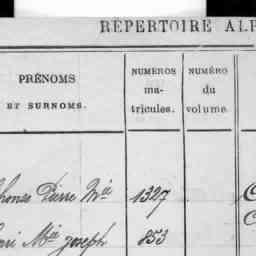 REPERTOIRE ALP
PRÉNOMS ET SURNOMS.
NUMÉROS matricules.
NUMÉRO du volume.
phonse Pierre Mie 1327
enri Mie joseph 853